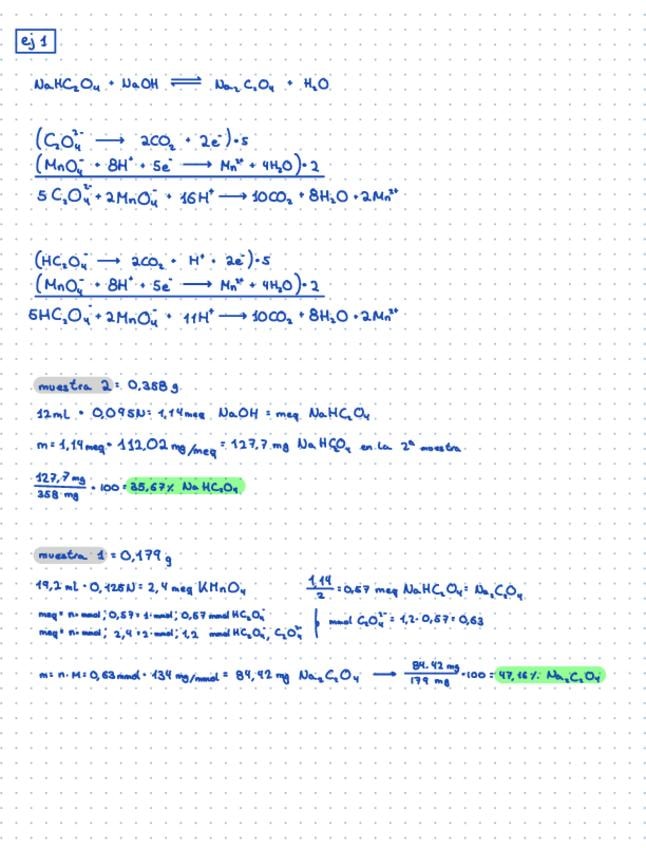 ej 1
NaHC₂O₄ + NaOH ⇌ Na₂C₂O₄ + H₂O
(C₂O₄²⁻ → 2CO₂ + 2e⁻)·5
(MnO₄⁻ + 8H⁺ + 5e⁻ → Mn²⁺ + 4H₂O)·2
5C₂O₄²⁻ + 2MnO₄⁻ + 16H⁺ → 10CO₂ + 8H₂O + 2Mn²⁺
(HC₂O₄⁻ → 2CO₂ + H⁺ + 2e⁻)·5
(MnO₄⁻ + 8H⁺ + 5e⁻ → Mn²⁺ + 4H₂O)·2
5HC₂O₄⁻ + 2MnO₄⁻ + 11H⁺ → 10CO₂ + 8H₂O + 2Mn²⁺
muestra 2 = 0,358 g
12mL · 0,095N = 1,14meq NaOH = meq NaHC₂O₄
m = 1,14meq · 112,02 mg/meq = 127,7 mg NaHC₂O₄ en la 2ª muestra
127,7 mg / 358 mg · 100 = 35,67% NaHC₂O₄
muestra 1 = 0,179 g
19,2 ml · 0,125N = 2,4 meq KMnO₄ 1,14/2 = 0,57 meq NaHC₂O₄ = Na₂C₂O₄
meq = n·mmol; 0,57 = 1·mmol; 0,57 mmol HC₂O₄⁻ mmol C₂O₄²⁻ = 1,2 - 0,57 = 0,63
meq = n·mmol; 2,4 = 2·mmol; 1,2 mmol HC₂O₄⁻, C₂O₄²⁻
m = n·M = 0,63mmol · 134 mg/mmol = 84,42 mg Na₂C₂O₄ → 84.42 mg / 179 mg · 100 = 47,16% Na₂C₂O₄